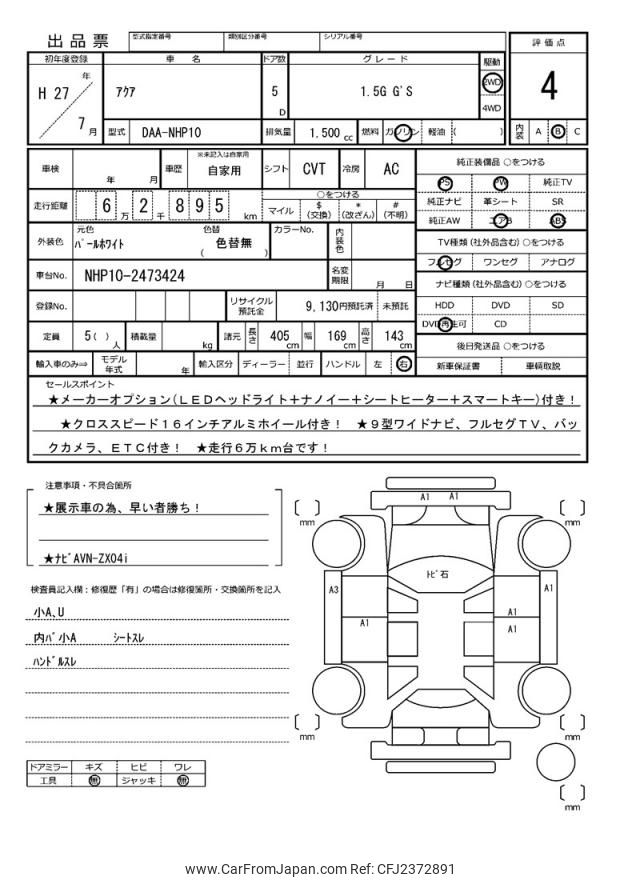 出品票
型式指定番号 類別区分番号 シリアル番号
評価点
4
初年度登録 車名 ドア数 グレード 駆動
H 27 年 7 月
アクア 5 D 1.5G G'S 2WD 4WD
型式 DAA-NHP10 排気量 1.500 cc 燃料 ガソリン 軽油 ( )
内装 A B C
車検 年 月 車歴 ※未記入は自家用 自家用 シフト CVT 冷房 AC
走行距離 6 万 2 千 8 9 5 km
○をつける
マイル $(交換) *(改ざん) #(不明)
外装色 元色 パールホワイト 色替 ( 色替無 ) カラーNo. 内装色
車台No. NHP10-2473424 名変期限 月 日
登録No. リサイクル預託金 9,130円預託済 未預託
定員 5( )人 積載量 kg 諸元 長さ 405 cm 幅 169 cm 高さ 143 cm
輸入車のみ⇒ モデル年式 年 輸入区分 ディーラー 並行 ハンドル 左 右
純正装備品 ○をつける
PS PW 純正TV
純正ナビ 革シート SR
純正AW エアB ABS
TV種類(社外品含む) ○をつける
フルセグ ワンセグ アナログ
ナビ種類(社外品含む) ○をつける
HDD DVD SD
DVD再生可 CD
後日発送品 ○をつける
新車保証書 車輌取説
セールスポイント
★メーカーオプション(LEDヘッドライト+ナノイー+シートヒーター+スマートキー)付き!
★クロススピード16インチアルミホイール付き! ★9型ワイドナビ、フルセグTV、バッ
クカメラ、ETC付き! ★走行6万km台です!
注意事項・不具合箇所
★展示車の為、早い者勝ち!
★ナビAVN-ZX04i
検査員記入欄:修復歴「有」の場合は修復箇所・交換箇所を記入
小A､U
内バ小A シートスレ
ハンドルスレ
ドアミラー キズ ヒビ ワレ
工具 無 ジャッキ 無
A1 A1
[ ] mm [ ] mm
トビ石
A3 A1
A1 A1
A1
[ ] mm [ ] mm
[ ] mm
www.CarFromJapan.com Ref: CFJ2372891